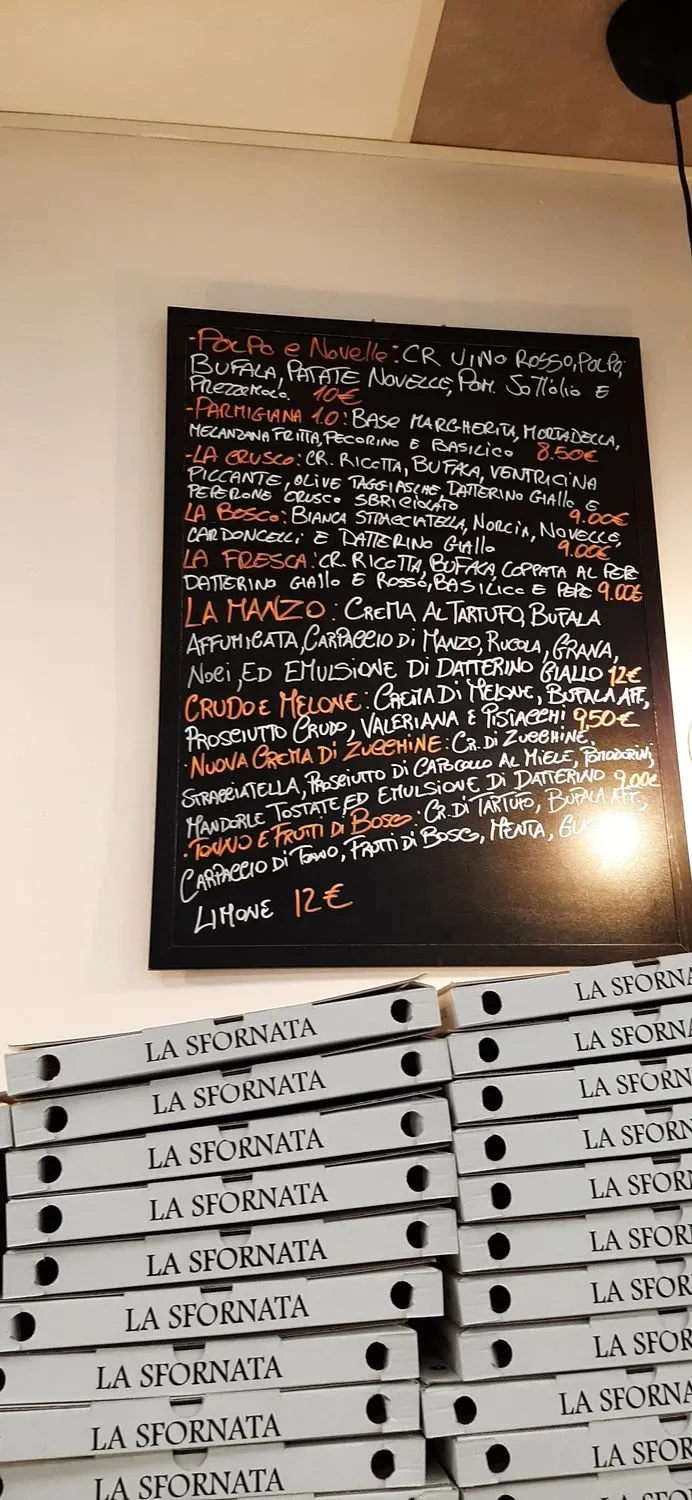 -Polpo e Novelle: CR VINO ROSSO, POLPO,
BUFALA, PATATE NOVELLE, POM. Sott'olio E
PREZZEMOLO. 10€
-PARMIGIANA 1.0: BASE MARGHERITA, MORTADELLA,
MELANZANA FRITTA, PECORINO E BASILICO 8.50€
-LA CRUSCO: CR. RICOTTA, BUFALA, VENTRICINA
PICCANTE, OLIVE TAGGIASCHE DATTERINO GIALLO E
PEPERONE CRUSCO SBRICIOLATO 9.00€
LA BOSCO: BIANCA STRACCIATELLA, NORCIA, NOVELLE,
CARDONCELLI E DATTERINO GIALLO 9.00€
LA FRESCA: CR. RICOTTA, BUFALA, COPPATA AL PEPE
DATTERINO GIALLO E ROSSO, BASILICO E PEPE 9.00€
LA MANZO: CREMA AL TARTUFO, BUFALA
AFFUMICATA, CARPACCIO DI MANZO, RUCOLA, GRANA,
NOCI, ED EMULSIONE DI DATTERINO GIALLO 12€
CRUDO E MELONE: CREMA DI MELONE, BUFALA AFF,
PROSCIUTTO CRUDO, VALERIANA E PISTACCHI 9,50€
-NUOVA CREMA DI ZUCCHINE: CR. DI ZUCCHINE,
STRACCIATELLA, PROSCIUTTO DI CAPOCOLLO AL MIELE, POMODORINI,
MANDORLE TOSTATE, ED EMULSIONE DI DATTERINO 9,00€
-TONNO E FRUTTI DI BOSCO: CR. DI TARTUFO, BUFALA AFF.,
CARPACCIO DI TONNO, FRUTTI DI BOSCO, MENTA,
LIMONE 12€
LA SFORNATA
LA SFORNATA
LA SFORNATA
LA SFORNATA
LA SFORNATA
LA SFORNATA
LA SFORNATA
LA SFORNATA
LA SFORNATA
LA SFORNA
LA SFORNA
LA SFORN
LA SFORN
LA SFOR
LA SFOR
LA SFOR
LA SFOR
LA SFORNA
LA SFOR